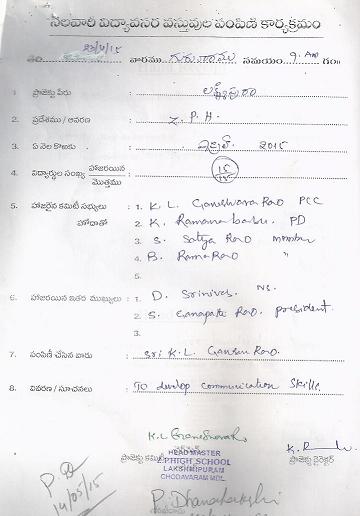 నెలవారీ విద్యావసర వస్తువుల పంపిణి కార్యక్రమం
తేది: 23/4/15 వారము గురువారము సమయం: 9. AM గం॥
1. ప్రాజెక్టు పేరు : లక్ష్మీపురం
2. ప్రదేశము / ఆవరణ : Z. P. H.
3. ఏ నెల కొఱకు : ఏప్రిల్ 2015
4. విద్యార్ధుల సంఖ్య హాజరయిన / మొత్తము :
5. హాజరైన కమిటీ సభ్యులు : 1. K. L. Ganeswara Rao PCC
హోదాతో 2. K. Ramana babu. PD
3. S. Satya Rao member
4. B. Rama Rao "
5.
6. హాజరయిన ఇతర ముఖ్యులు : 1. D. Srinivas. NS.
2. S. Ganapati Rao. president.
3.
7. పంపిణీ చేసిన వారు : Sri K.L. Ganesu Rao.
8. వివరణ / సూచనలు : To develop communication Skills.
K.L. Ganeshwarao
ప్రాజెక్టు కమిటీ ప్రాజెక్టు డైరెక్టర్
HEAD MASTER
Z.P.HIGH SCHOOL
LAKSHMIPURAM
CHODAVARAM MDL.
14/05/15
P. Dhanalakshmi